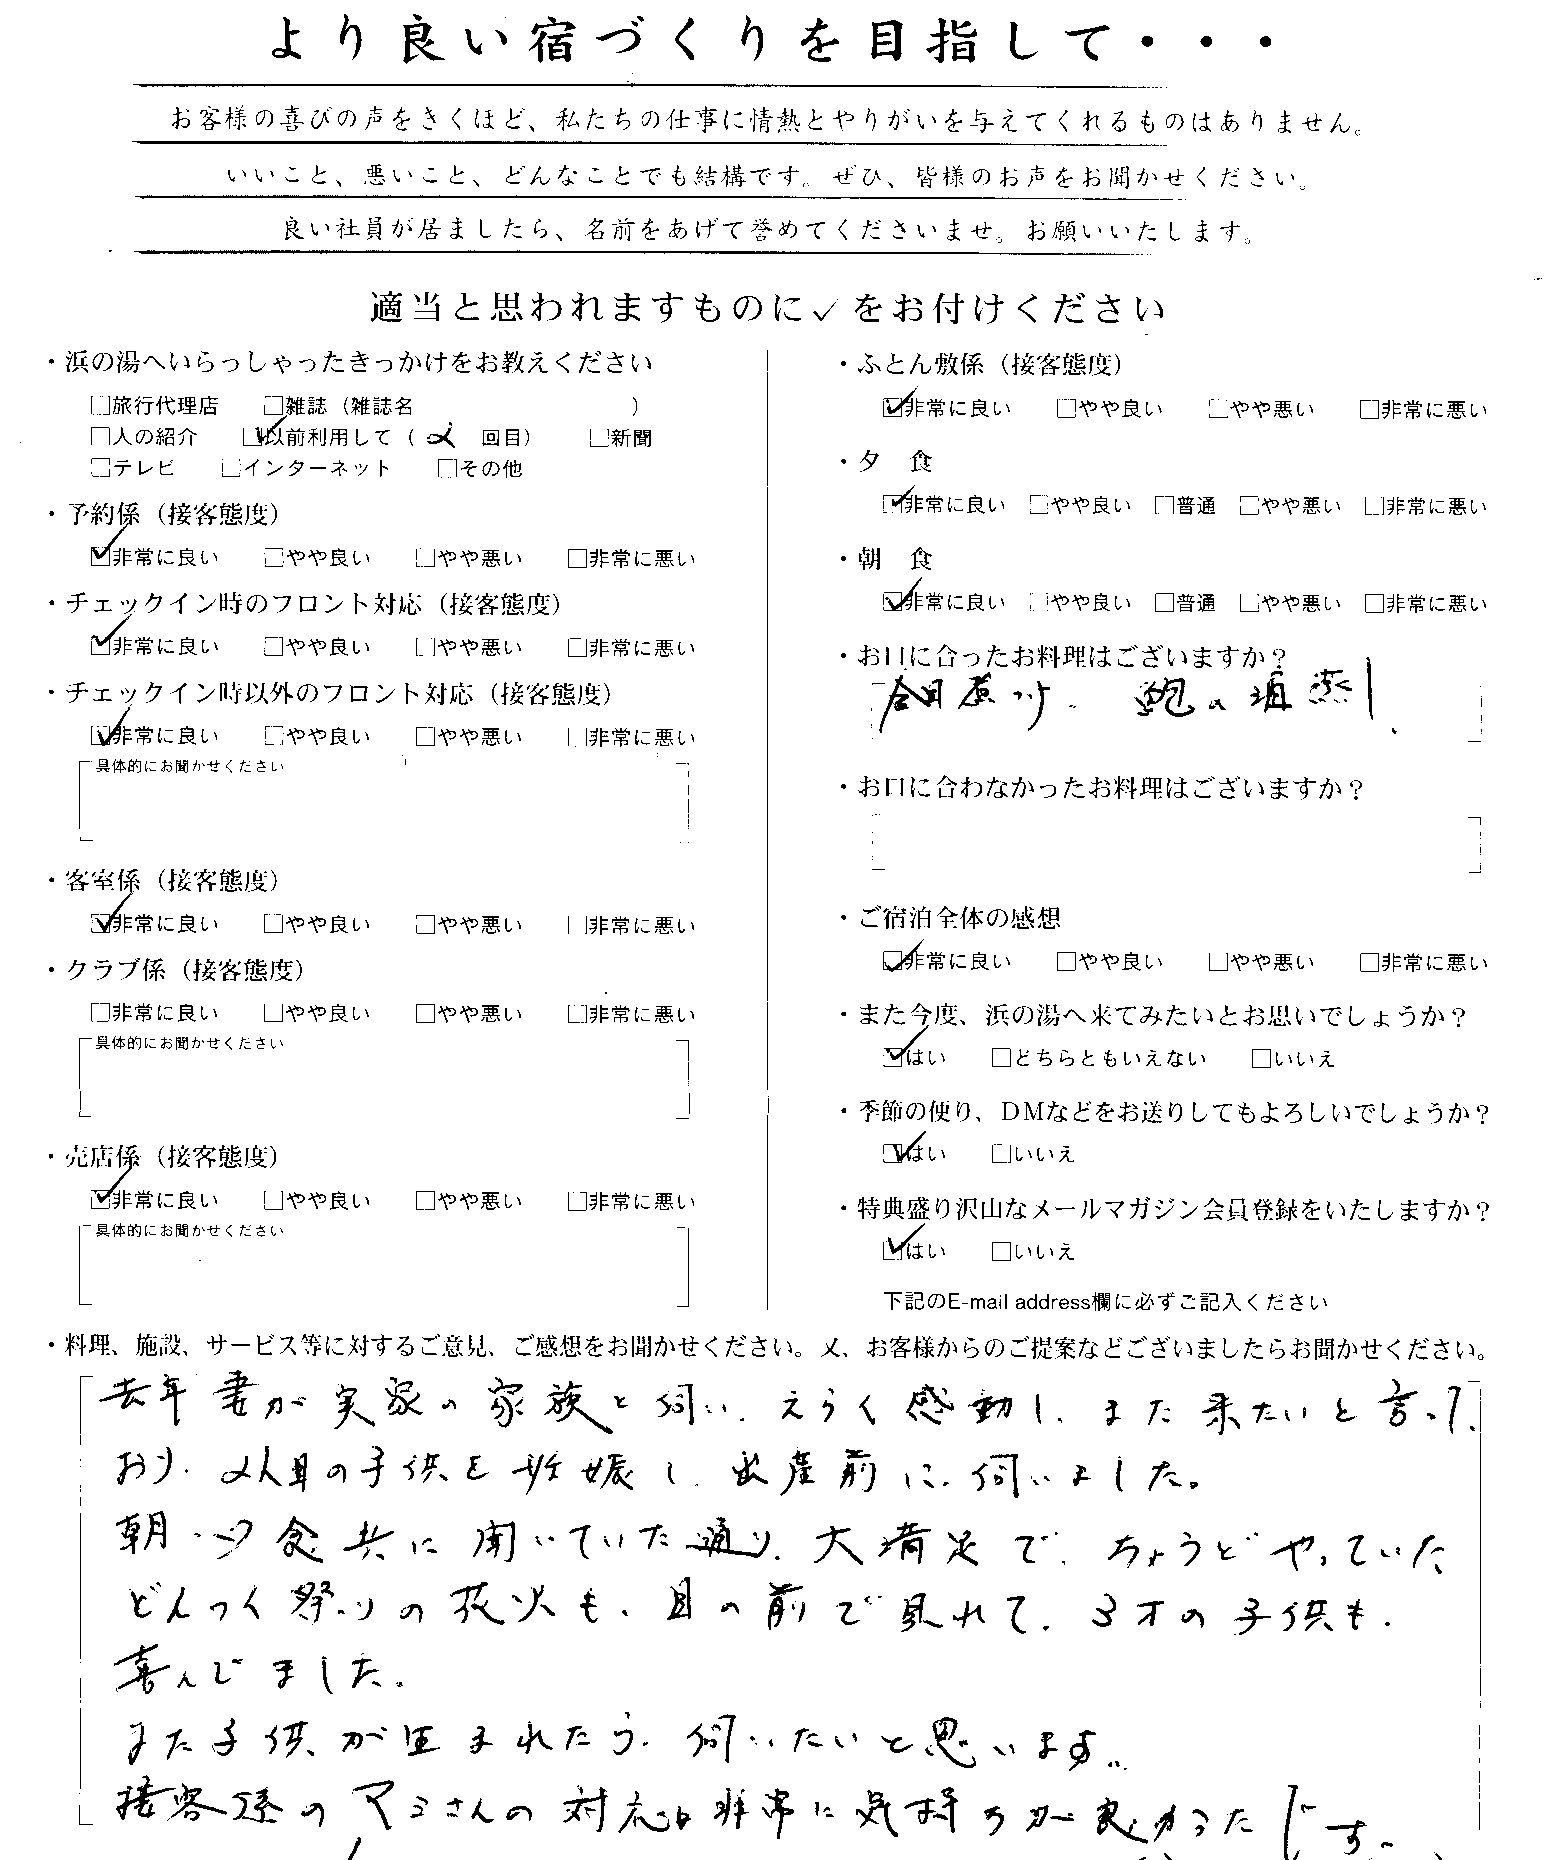 より良い宿づくりを目指して・・・
お客様の喜びの声をきくほど、私たちの仕事に情熱とやりがいを与えてくれるものはありません。
いいこと、悪いこと、どんなことでも結構です。ぜひ、皆様のお声をお聞かせください。
良い社員が居ましたら、名前をあげて誉めてくださいませ。お願いいたします。
適当と思われますものに✓をお付けください
・浜の湯へいらっしゃったきっかけをお教えください
□旅行代理店 □雑誌（雑誌名 ）
□人の紹介 ☑以前利用して（ 2 回目） □新聞
□テレビ □インターネット □その他
・予約係（接客態度）
☑非常に良い □やや良い □やや悪い □非常に悪い
・チェックイン時のフロント対応（接客態度）
☑非常に良い □やや良い □やや悪い □非常に悪い
・チェックイン時以外のフロント対応（接客態度）
☑非常に良い □やや良い □やや悪い □非常に悪い
具体的にお聞かせください
・客室係（接客態度）
☑非常に良い □やや良い □やや悪い □非常に悪い
・クラブ係（接客態度）
□非常に良い □やや良い □やや悪い □非常に悪い
具体的にお聞かせください
・売店係（接客態度）
☑非常に良い □やや良い □やや悪い □非常に悪い
具体的にお聞かせください
・ふとん敷係（接客態度）
☑非常に良い □やや良い □やや悪い □非常に悪い
・夕 食
☑非常に良い □やや良い □普通 □やや悪い □非常に悪い
・朝 食
☑非常に良い □やや良い □普通 □やや悪い □非常に悪い
・お口に合ったお料理はございますか？
金目煮つけ、鮑の酒蒸し
・お口に合わなかったお料理はございますか？
・ご宿泊全体の感想
☑非常に良い □やや良い □やや悪い □非常に悪い
・また今度、浜の湯へ来てみたいとお思いでしょうか？
☑はい □どちらともいえない □いいえ
・季節の便り、DMなどをお送りしてもよろしいでしょうか？
☑はい □いいえ
・特典盛り沢山なメールマガジン会員登録をいたしますか？
☑はい □いいえ
下記のE-mail address欄に必ずご記入ください
・料理、施設、サービス等に対するご意見、ご感想をお聞かせください。又、お客様からのご提案などございましたらお聞かせください。
去年妻が実家の家族と伺い、えらく感動し、また来たいと言って
おり、2人目の子供を妊娠し、出産前に伺いました。
朝・夕食共に聞いていた通り、大満足で、ちょうどやっていた
どんつく祭りの花火も、目の前で見れて、3才の子供も、
喜んでました。
また子供が生まれたら、伺いたいと思います。
接客係のアミさんの対応は非常に気持ちが良かったです。